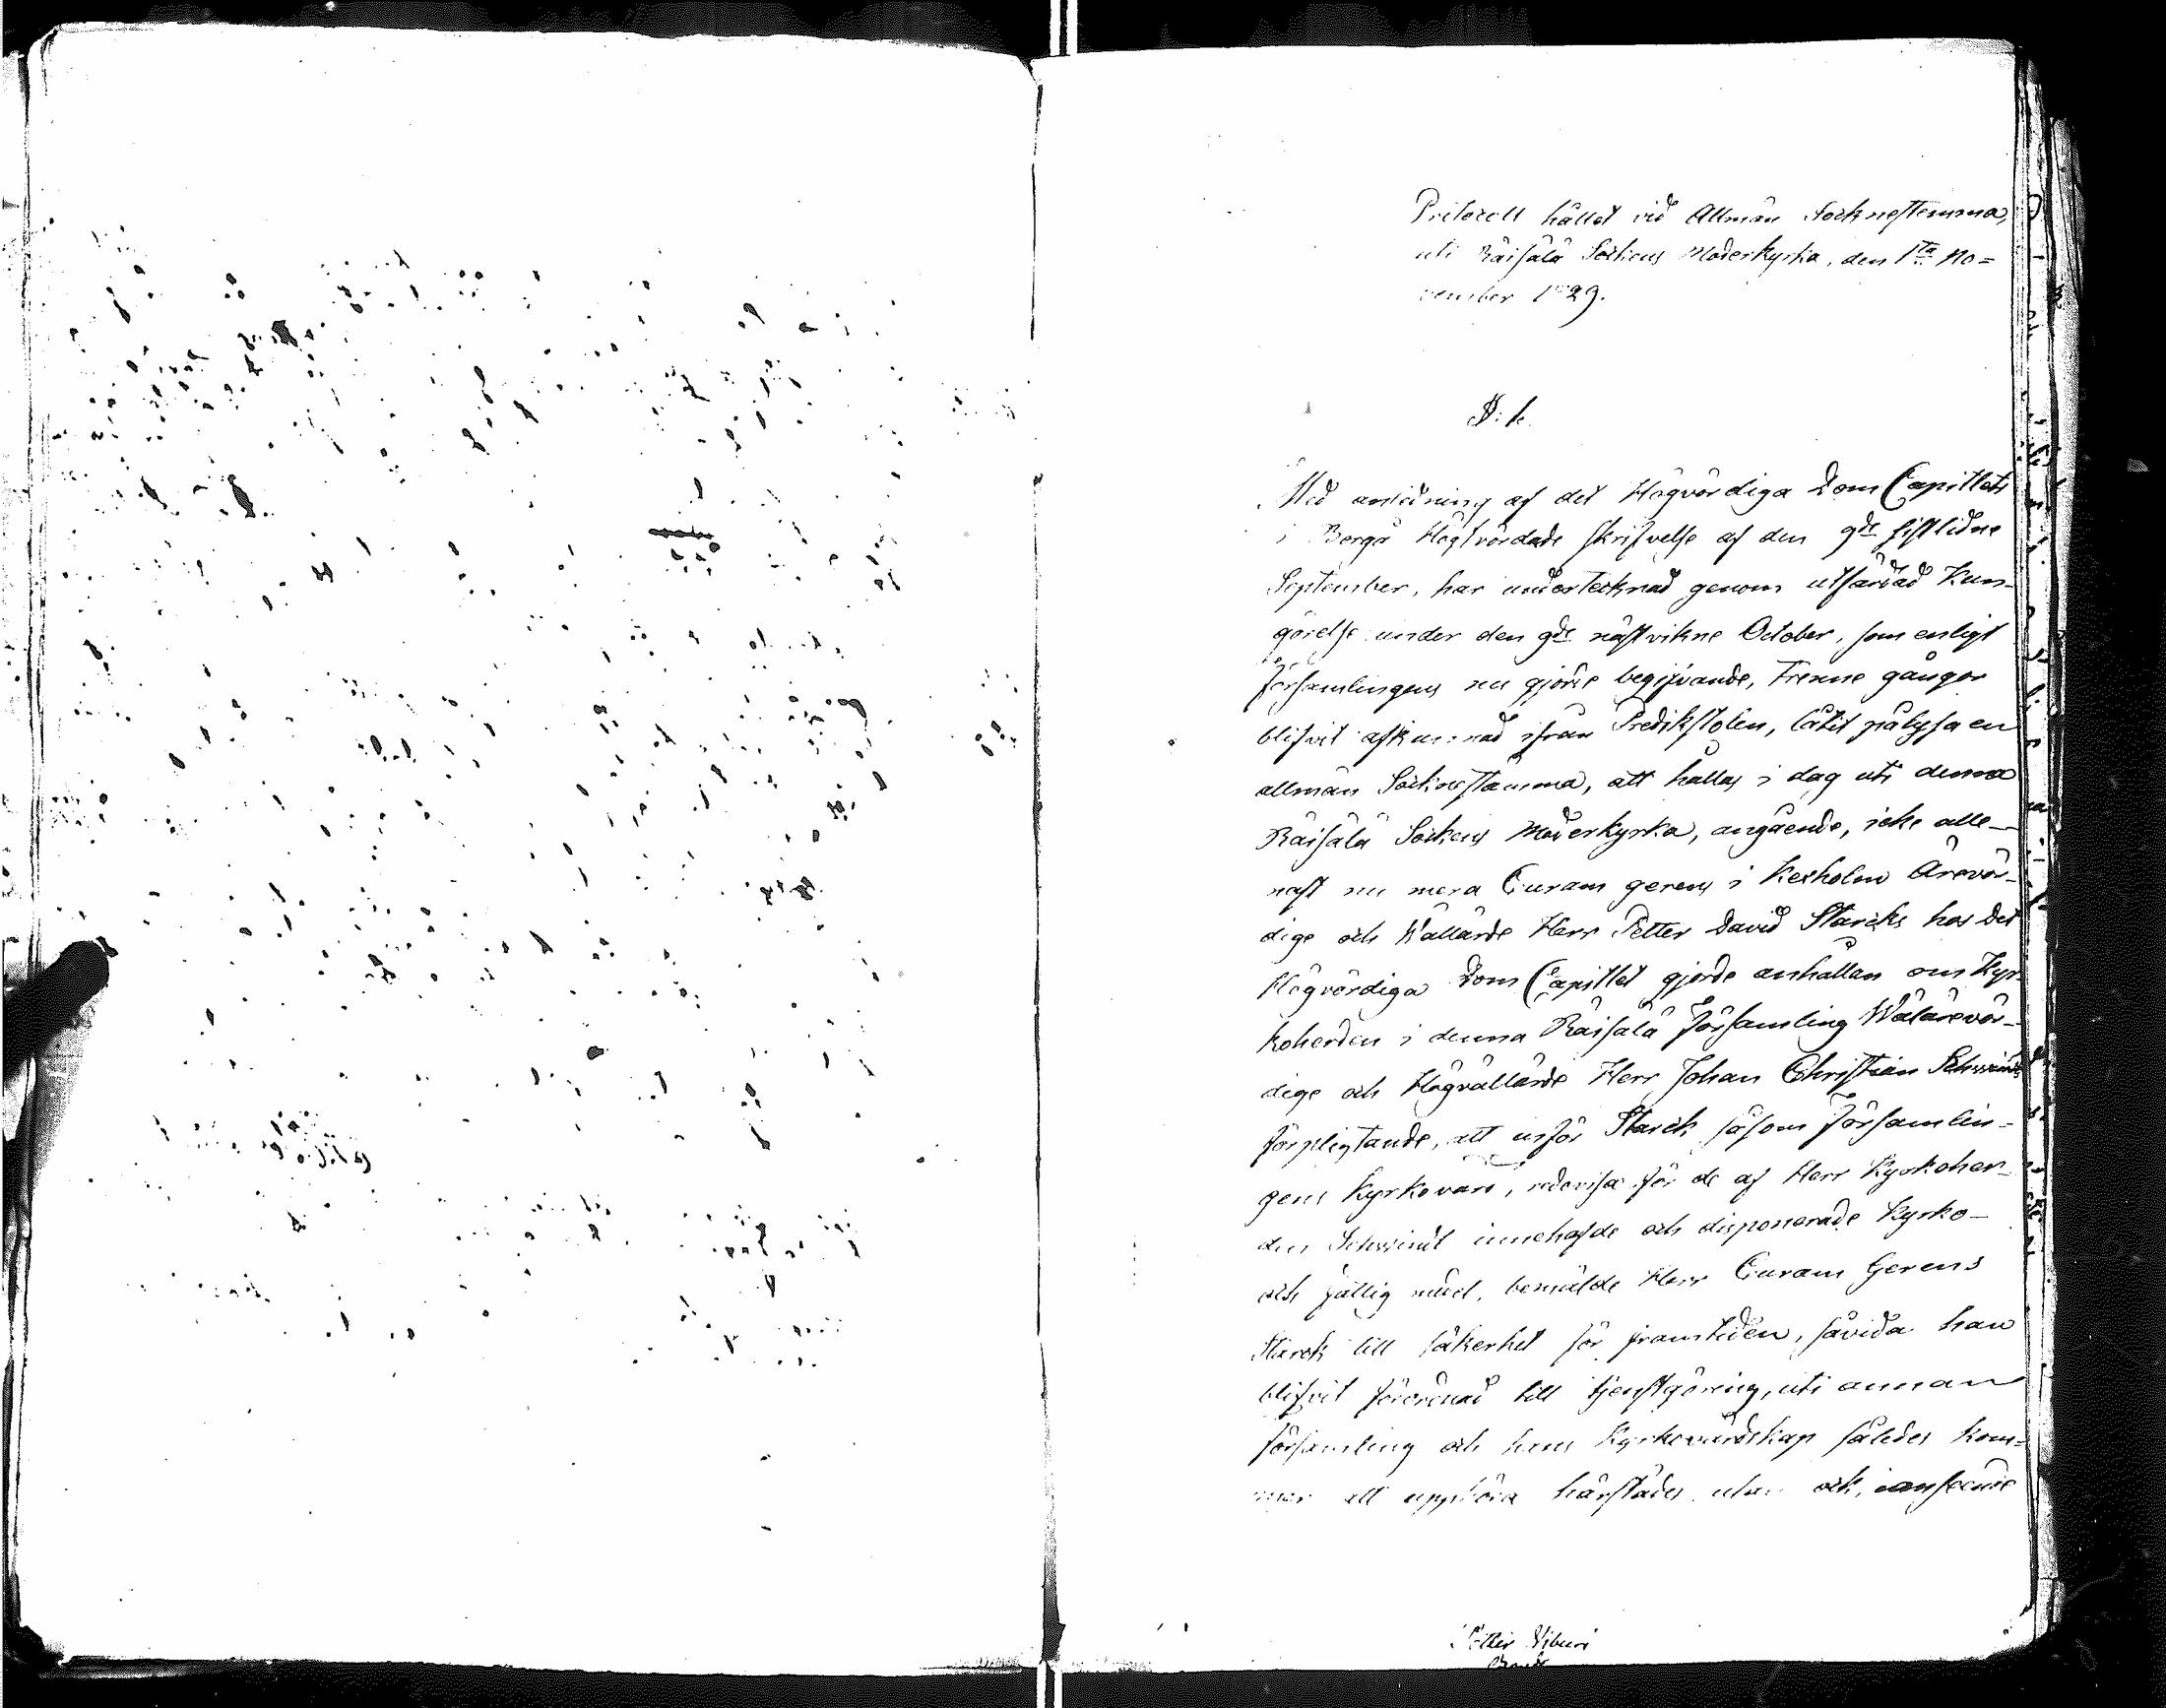 Protocoll hållet vid Allmän Socknestemma,
uti Räisälä Sockens Moderkyrka, den 1ta No=
vember 1829.
§: 1.
Med anledning af det Högvördiga Dom Capitlets
i Borgå Högtvördade skrifvelse af den 9de sistlidne
September, har undertecknad genom utfärdad Kun-
görelse under den 9de nästvikne October, som enligt
Församlingens nu gjorde begifvande, Trenne gånger
blifvit afkunnad ifrån Predikstolen, låtit pålysa en
allmän Sockenstämma, att hållas i dag uti denna
Räisälä Sockens Moderkyrka, angående, icke alle-
nast nu mera Curam gerens i Kexholm Ärevör-
dige och Wällärde Herr Petter David Starcks hos Det
Högvördiga Dom Capitlet gjorde anhållan om Kyr-
koherden i denna Räisälä Församling Wälärevör-
dige och Högvällärde Herr Johan Christian Schwindts
förpligtande, att inför Starck såsom Församlin-
gens Kyrkovärd, redovisa för de af Herr Kyrkoher-
den Schwindt innehafde och disponerade Kyrko-
och fattig medel, bemälde Herr Curam Gerens
Starck till säkerhet för framtiden, såvida han
blifvit förordnad till tjenstgöring, uti annan
församling och hans Kyrkovärdskap således kom-
mer att upphöra härstädes utan och, i anseende
Petter